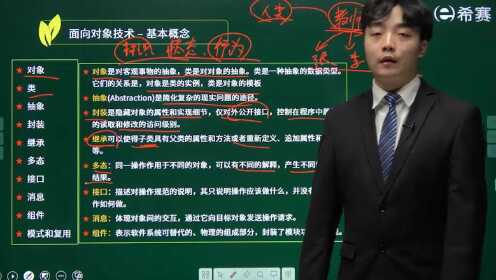 面向对象技术 - 基本概念
希赛
对象
类
抽象
封装
继承
多态
接口
消息
组件
模式和复用
对象是对客观事物的抽象,类是对对象的抽象。类是一种抽象的数据类型。
它们的关系是,对象是类的实例,类是对象的模板
抽象(Abstraction)是简化复杂的现实问题的途径。
封装是隐藏对象的属性和实现细节,仅对外公开接口,控制在程序中
的读取和修改的访问级别。
继承可以使得子类具有父类的属性和方法或者重新定义、追加属性和
等。
多态:同一操作作用于不同的对象,可以有不同的解释,产生不同
结果。
接口:描述对操作规范的说明,其只说明操作应该做什么,并没有
作如何做。
消息:体现对象间的交互,通过它向目标对象发送操作请求。
组件:表示软件系统可替代的、物理的组成部分,封装了模块功